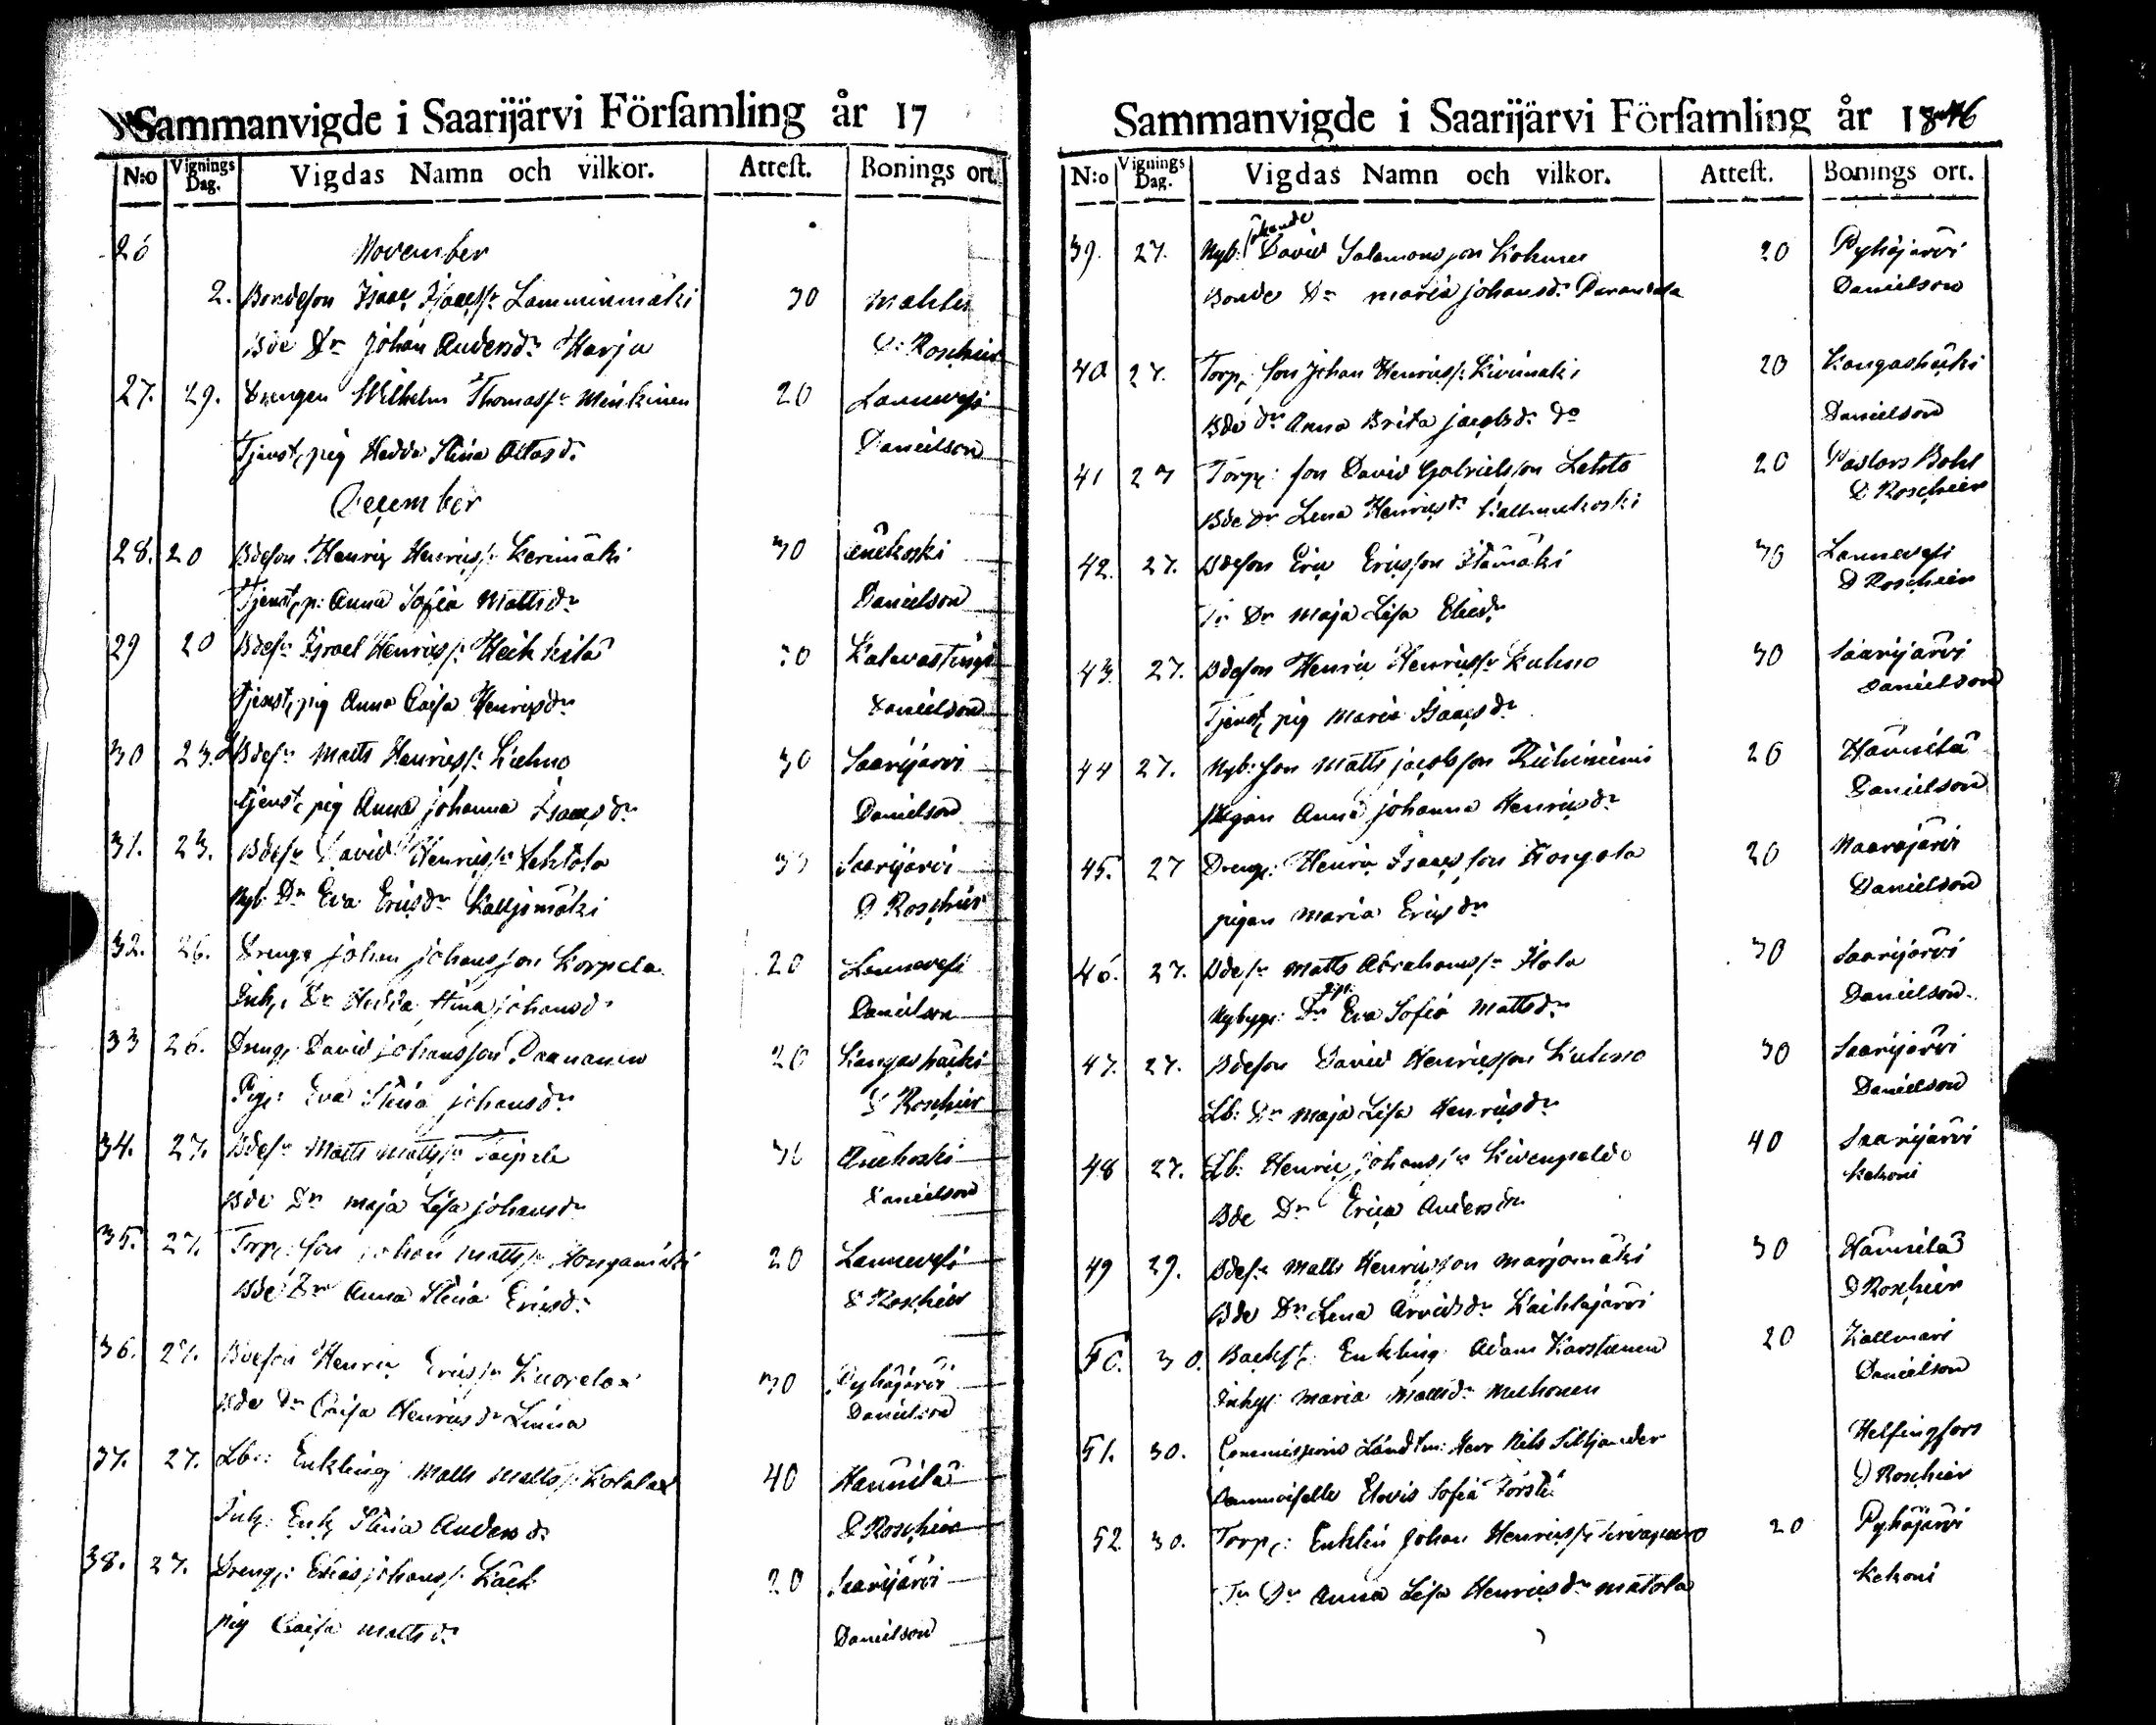 Sammanvigde i Saarijärvi Förſamling år 17
N:o Vignings Dag. Vigdas Namn och vilkor. Atteſt. Bonings ort.
26 November
2. Bondeson Isaac Isaacss: Lamminmäki 30 Mahlu
Bde Dr Johan Andersdr Harju D: Roschier
27. 29. Drengen Wilhelm Thomass: Minkinen 20 Lannevesi
Tjenst, pig Hedda Stina Ottosd: Danielson
December
28. 20 Bdeson Henric Henricss: Kerimäki 30 Änekoski
Tjenst, p: Anna Sofia Mattsdr Danielson
29 20 Bdesn Israel Henricss: Heikkilä 30 Kalavasting
Tjenst, pig Anna Caisa Henricsdr Danielson
30 23. Bdesn Matts Henricss: Kuhno 30 Saarijärvi
tjenst, pig Anna Johanna Isaacsdr Danielson
31. 23. Bdesn David Henricss: Lehtola 30 Saarijärvi
Nyb: Dr Eva Ericsdr Kalljomäki D Roschier
32. 26. Drenge Johan Johansson Korpela 20 Lannevesi
Inh, Dr Hedda Stina Johansd: Danielson
33 26. Dreng, David Johansson Paananen 20 Kangashäki
Pig: Eva Stina Johansdr D Roschier
34. 27. Bdesn Matts Mattss: Taipale 30 Änekoski
Bde Dr Maja Lisa Johansdr Danielson
35. 27. Torp: son Johan Mattss: Hongamäki 20 Lannevesi
Bde Dr Anna Stina Ericsd: D Roschier
36. 27. Bdeson Henric Ericss: Kuorelax 30 Pyhäjärvi
Bde Dr Caisa Henricsdr Linna Danielson
37. 27. Lb: Enkling Matts Mattss: Kolalax 40 Hännilä
Inh: Enk, Stina Andersd: D Roschier
38. 27. Dreng: Elias Johanss: Käck 20 Saarijärvi
pig Caisa Mattsd: Danielson
Sammanvigde i Saarijärvi Förſamling år 1846
N:o Vignings Dag. Vigdas Namn och vilkor. Atteſt. Bonings ort.
39. 27. Nyb: David Salamonsson Kahmer 20 Pyhäjärvi
Bonde Dr Maria Johansd: Danielson
40. 27. Torp, son Johan Henricss: Kivimäki 20 Kangashäki
Bde dr Anna Brita Jacobsd: do Danielson
41 27 Torp: son David Gabrielsson Lehto 20 Pastors Bohl
Bde Dr Lena Henricsdr Kallmukoski D Roschier
42. 27. Bdeson Eric Ericsson Itämäki 30 Lannevesi
Tr Dr Maja Lisa Eliedr D Roschier
43. 27. Bdeson Henric Henricss: Kuhno 30 Saarijärvi
Tjenst, pig Maria Isaacsdr Danielson
44 27. Nyb: son Matts Jacobsson Riihiniemi 20 Hännilä
pigan Anna Johanna Henricsdr Danielson
45. 27 Dreng: Henric Isaacsson Kongola 20 Naarajärvi
pigan Maria Ericsdr Danielson
46. 27. Bdesn Matts Abrahamss: Hola 30 Saarijärvi
Nybygg: Dr Eva Sofia Mattsdr Danielson
47. 27. Bdeson David Henricsson Kuhno 30 Saarijärvi
Lb: Dr Maja Lisa Henricsdr Danielson
48 27. Lb: Henric Johanss: Kivenpeldo 40 Saarijärvi
Bde Dr Erica Andersdr Kekoni
49 29. Bdesn Matts Henricsson Marjomäki 30 Hännilä
Bde Dr Lena Arvidsdr Kaihlajärvi D Roschier
50. 30. Backst: Enkling Adam Karstunen 20 Kallmari
Inhys: Maria Mattsd: Muhonen Danielson
51. 30. Commissions Landtm: Herr Nils Siltjander Helsingfors
Dammoiselle Elovis Sofia D Roschier
52. 30. Torp,: Enklin Johan Henricss: Tervapuro 20 Pyhäjärvi
Tr Dr Anna Lisa Henricsdr Matola Kekoni